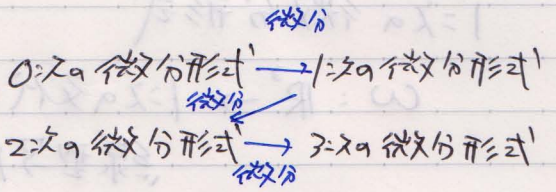 微分
0次の微分形式→1次の微分形式
微分
2次の微分形式→3次の微分形式
微分